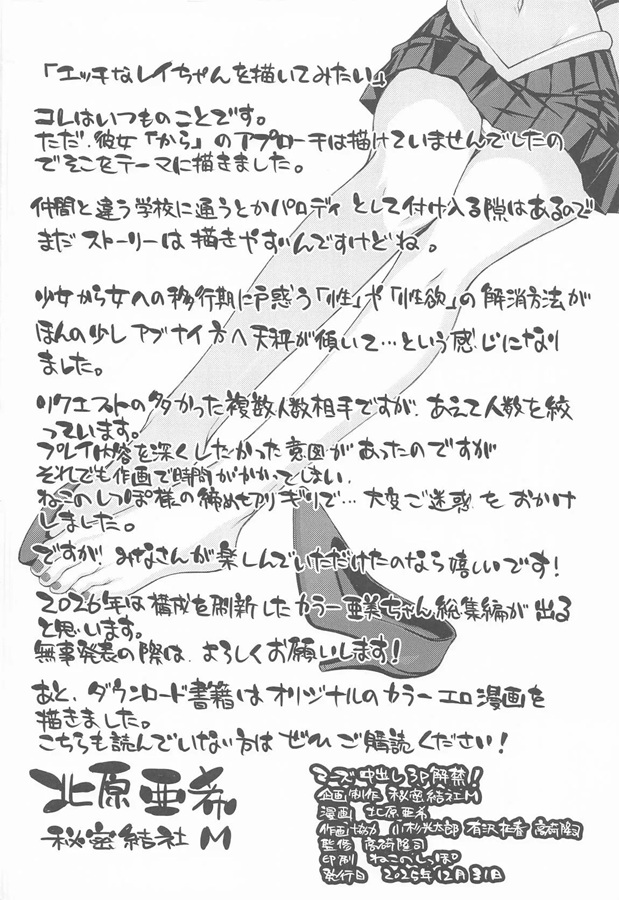 「エッチなレイちゃんを描いてみたい」
コレはいつものことです。
ただ、彼女「から」のアプローチは描けていませんでしたの
でそこをテーマに描きました。
仲間と違う学校に通うとかパロディとして付け入る隙はあるので
まだストーリーは描きやすいんですけどね。
少女から女への移行期に戸惑う「性」や「性欲」の解消方法が
ほんの少しアブナイ方へ天秤が傾いて…という感じになり
ました。
リクエストの多かった複数人数相手ですが、あえて人数を絞
っています。
プレイ内容を深くしたかった意図があったのですが
それでも作画で時間がかかってしまい、
ねこのしっぽ様の締め切りギリギリで…大変ご迷惑をおかけ
しました。
ですが、みなさんが楽しんでいただけたのなら嬉しいです!
2026年は構成を刷新したカラー亜美ちゃん総集編が出る
と思います。
無事発表の際は、よろしくお願いします!
あと、ダウンロード書籍はオリジナルのカラーエロ漫画を
描きました。
こちらも読んでいない方はぜひご購読ください!
北原亜希
秘密結社M
中出し3P解禁!!
企画制作 秘密結社M
漫画 北原亜希
作画協力
監修
印刷 ねこのしっぽ
発行日 2025年12月31日